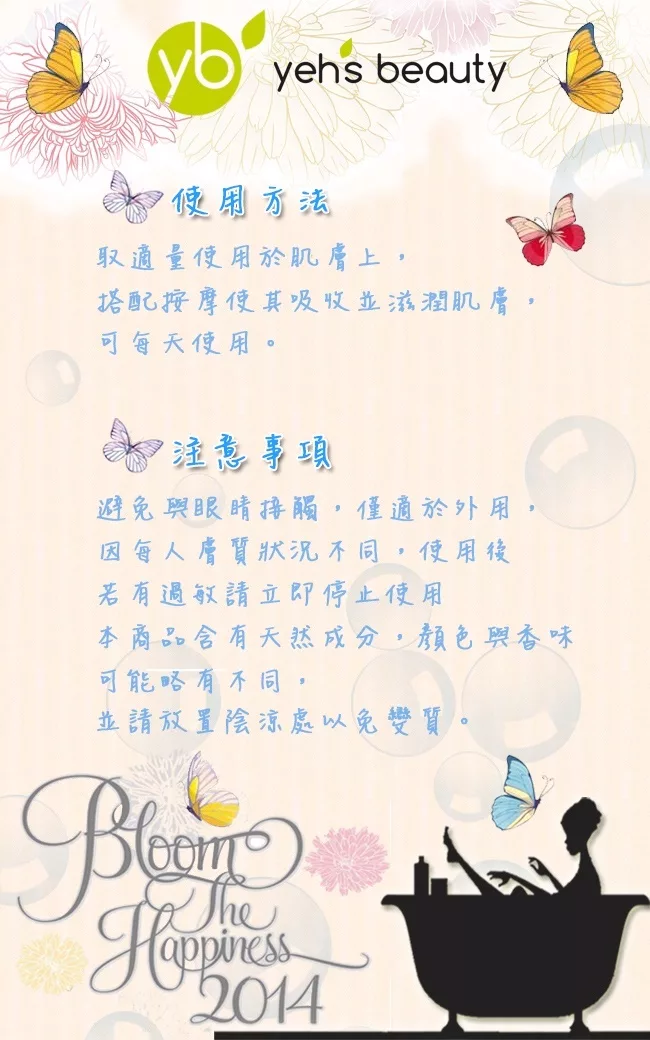 yb yeh's beauty
使用方法
取適量使用於肌膚上，
搭配按摩使其吸收並滋潤肌膚，
可每天使用。
注意事項
避免與眼睛接觸，僅適於外用，
因每人膚質狀況不同，使用後
若有過敏請立即停止使用
本商品含有天然成分，顏色與香味
可能略有不同，
並請放置陰涼處以免變質。
Bloom
The
Happiness
2014